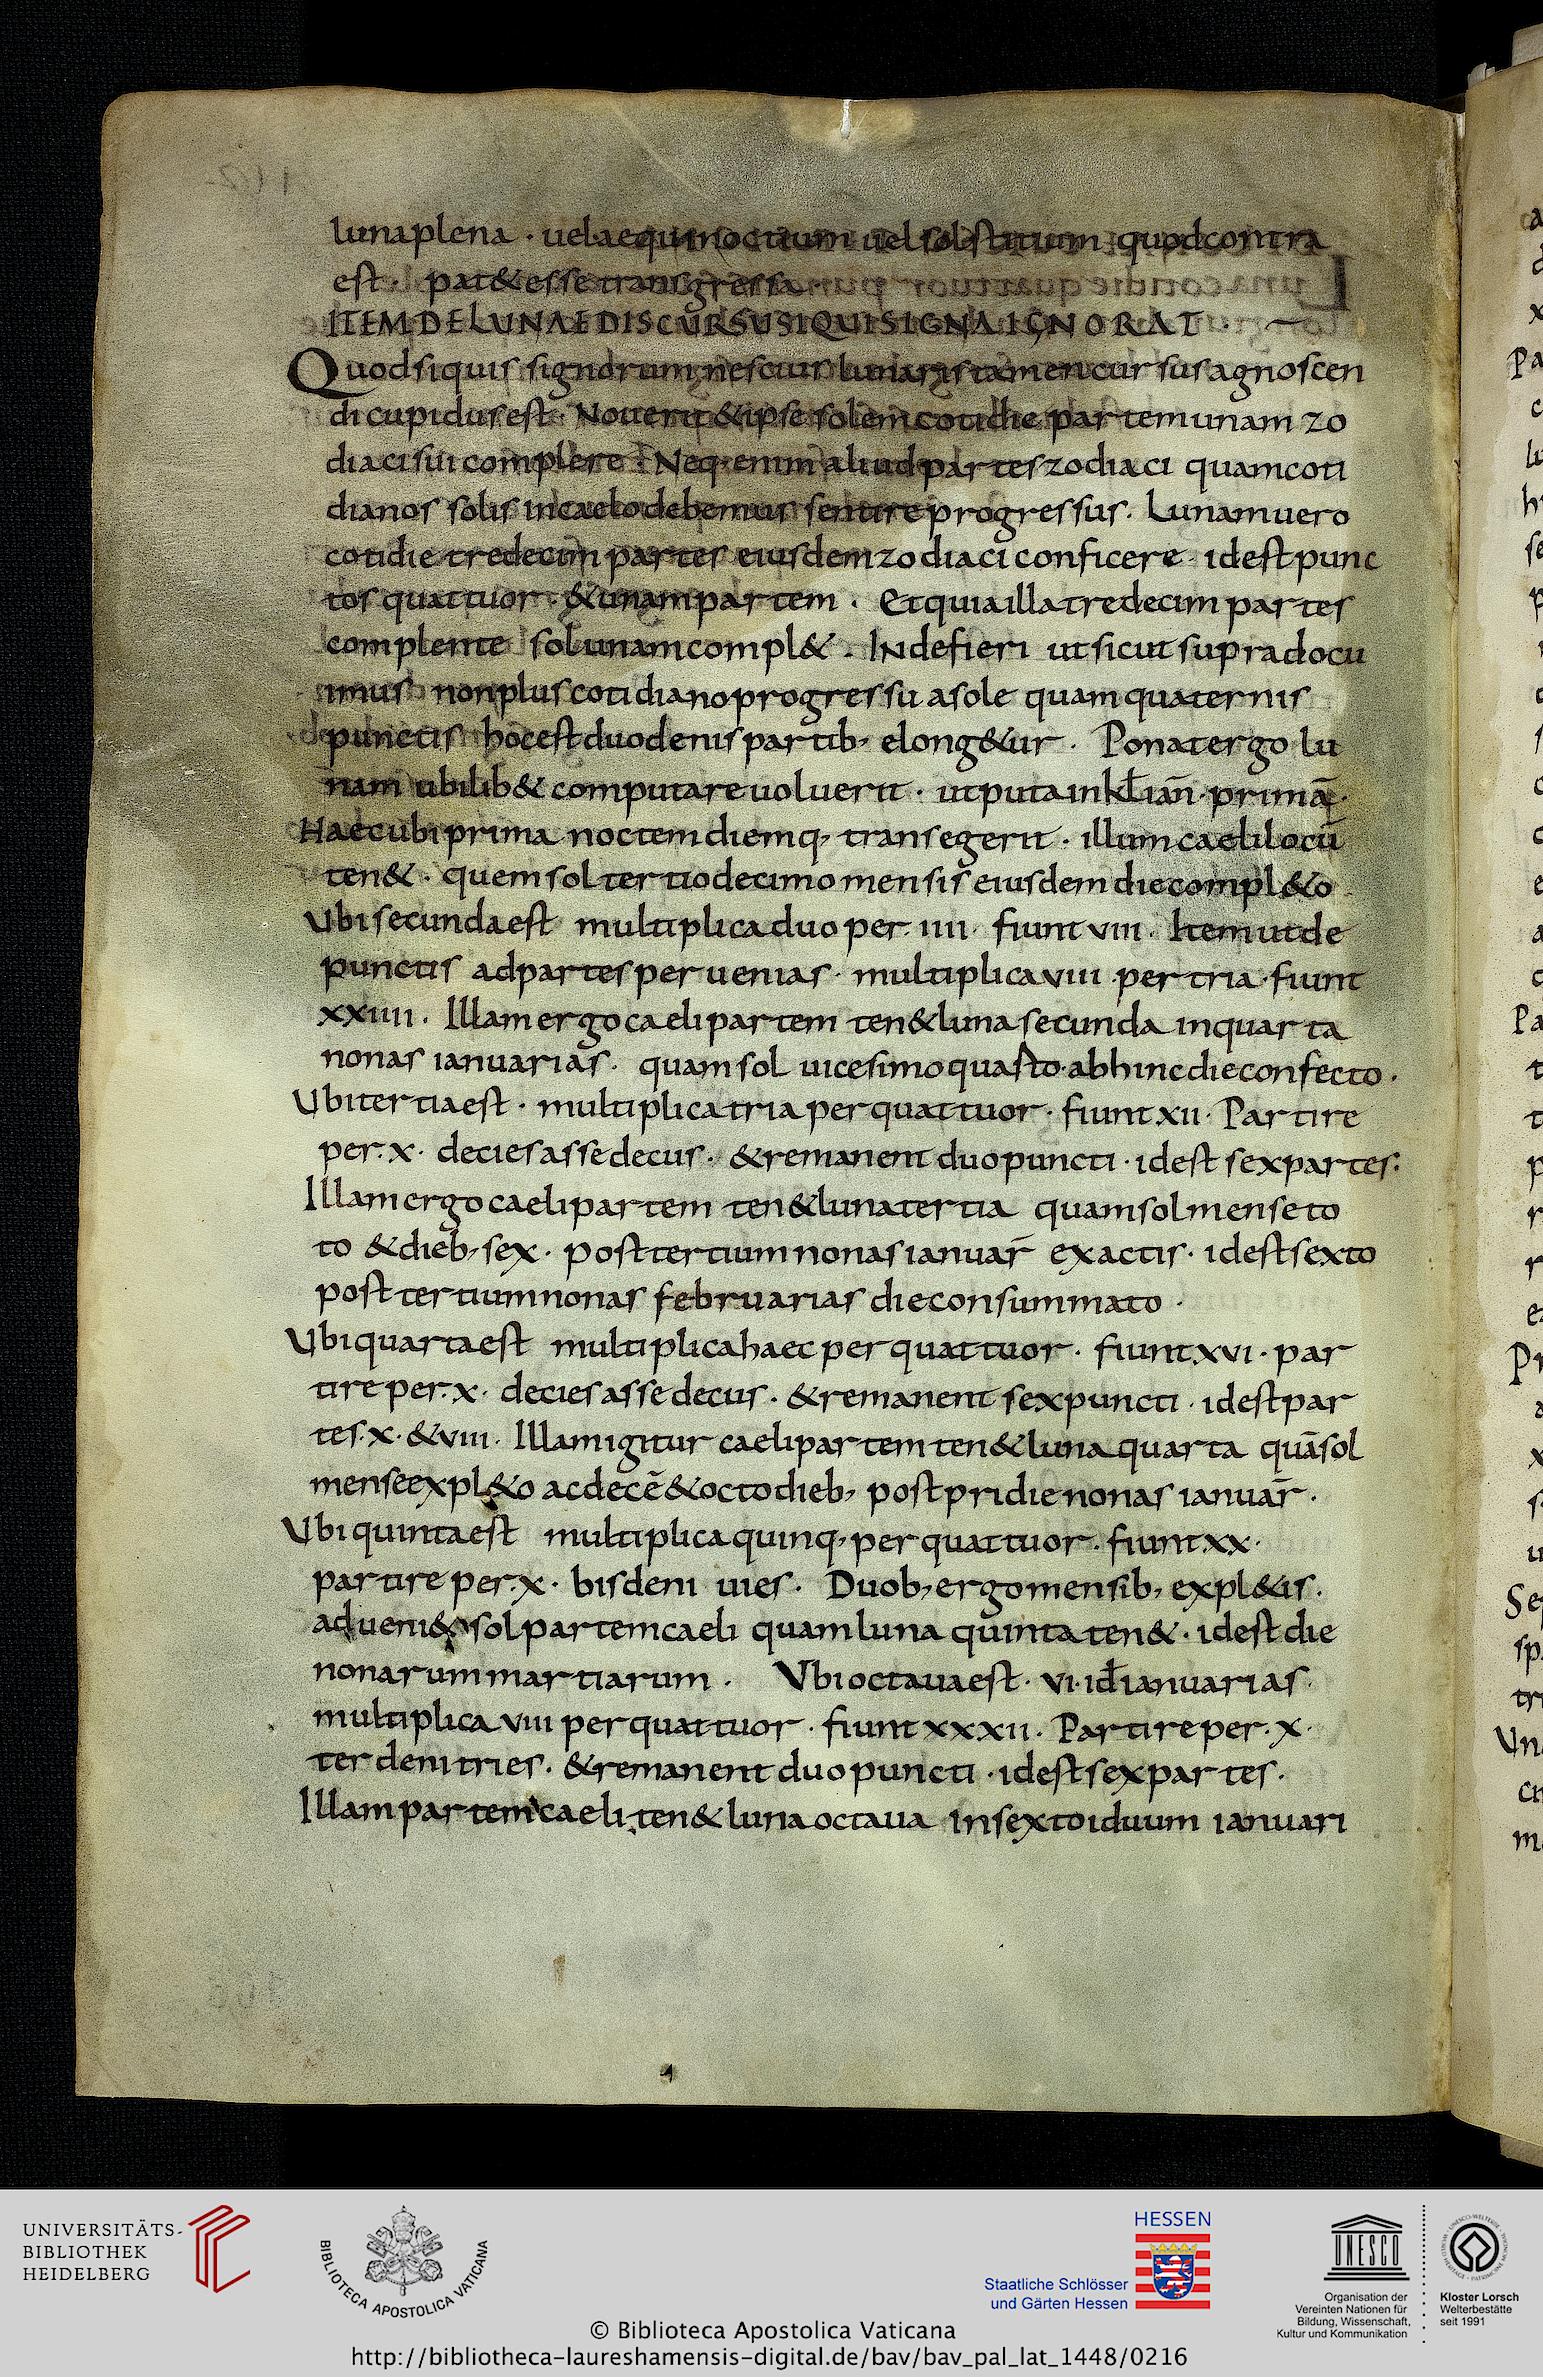 luna plena · uel aequinoctium uel solstitium quod contra
est · pat& esse transgressa
ITEM DE LUNAE DISCURSU SI QUI SIGNA IGNORAT ·
Quod si quis signorum nescius lunaris tamen cursus agnoscen
di cupidus est · Nouerit & ipse solem cotidie partem unam zo
diaci sui complere · Neq· enim aliud partes zodiaci quam coti
dianos solis in caelo debemus sentire progressus · Lunam uero
cotidie tredecim partes eiusdem zodiaci conficere · id est punc
tos quattuor · & unam partem · Et quia illa tredecim partes
complente sol unam compl& · INde fieri ut sicut supra docu
imus non plus cotidiano progressu a sole quam quaternis
punctis hoc est duodenis partib; elong&ur · Ponat ergo lu
nam ubi lib& computare uoluerit · utputa in kł ian̄ · primā ·
Haec ubi prima noctem diemq; transegerit · illum caeli locū
ten& · quem sol tertio decimo mensis eiusdem die compl&o ·
Ubi secunda est multiplica duo per · IIII · fiunt VIII · Item ut de
punctis ad partes peruenias · multiplica VIII · per tria · fiunt
XXIIII · Illam ergo caeli partem ten& luna secunda in quarta
nonas ianuarias · quam sol uicesimo quarto abhinc die confecto ·
Ubi tertia est · multiplica tria per quattuor · fiunt XII · Partire
per · X · decies asse decus · & remanent duo puncti · id est sex partes :
Illam ergo caeli partem ten& luna tertia quam sol mense to
to & dieb; sex · post tertium nonas ianuar̄ exactis · id est sexto
post tertium nonas februarias die consummato ·
Ubi quarta est multiplica haec per quattuor · fiunt XVI · par
tire per · X · decies asse decus · & remanent sex puncti · id est par
tes · X · & VIII · Illam igitur caeli partem ten& luna quarta quā sol
mense expl&o ac decē & octo dieb; post pridie nonas ianuār ·
Ubi quinta est multiplica quinq; per quattuor · fiunt XX ·
partire per · X · bis deni uies · Duob; ergo mensib; expl&is ·
adueni& sol partem caeli quam luna quinta ten& · id est die
nonarum martiarum · Ubi octaua est · VI · id̄ ianuarias ·
multiplica VIII per quattuor · fiunt XXXII · Partire per · X ·
ter deni tries · & remanent duo puncti · id est sex partes ·
Illam partem caeli ten& luna octaua in sexto iduum ianuari
UNIVERSITÄTS-
BIBLIOTHEK
HEIDELBERG
BIBLIOTECA APOSTOLICA VATICANA
HESSEN
Staatliche Schlösser
und Gärten Hessen
UNESCO
Organisation der
Vereinten Nationen für
Bildung, Wissenschaft,
Kultur und Kommunikation
Kloster Lorsch
Welterbestätte
seit 1991
© Biblioteca Apostolica Vaticana
http://bibliotheca-laureshamensis-digital.de/bav/bav_pal_lat_1448/0216